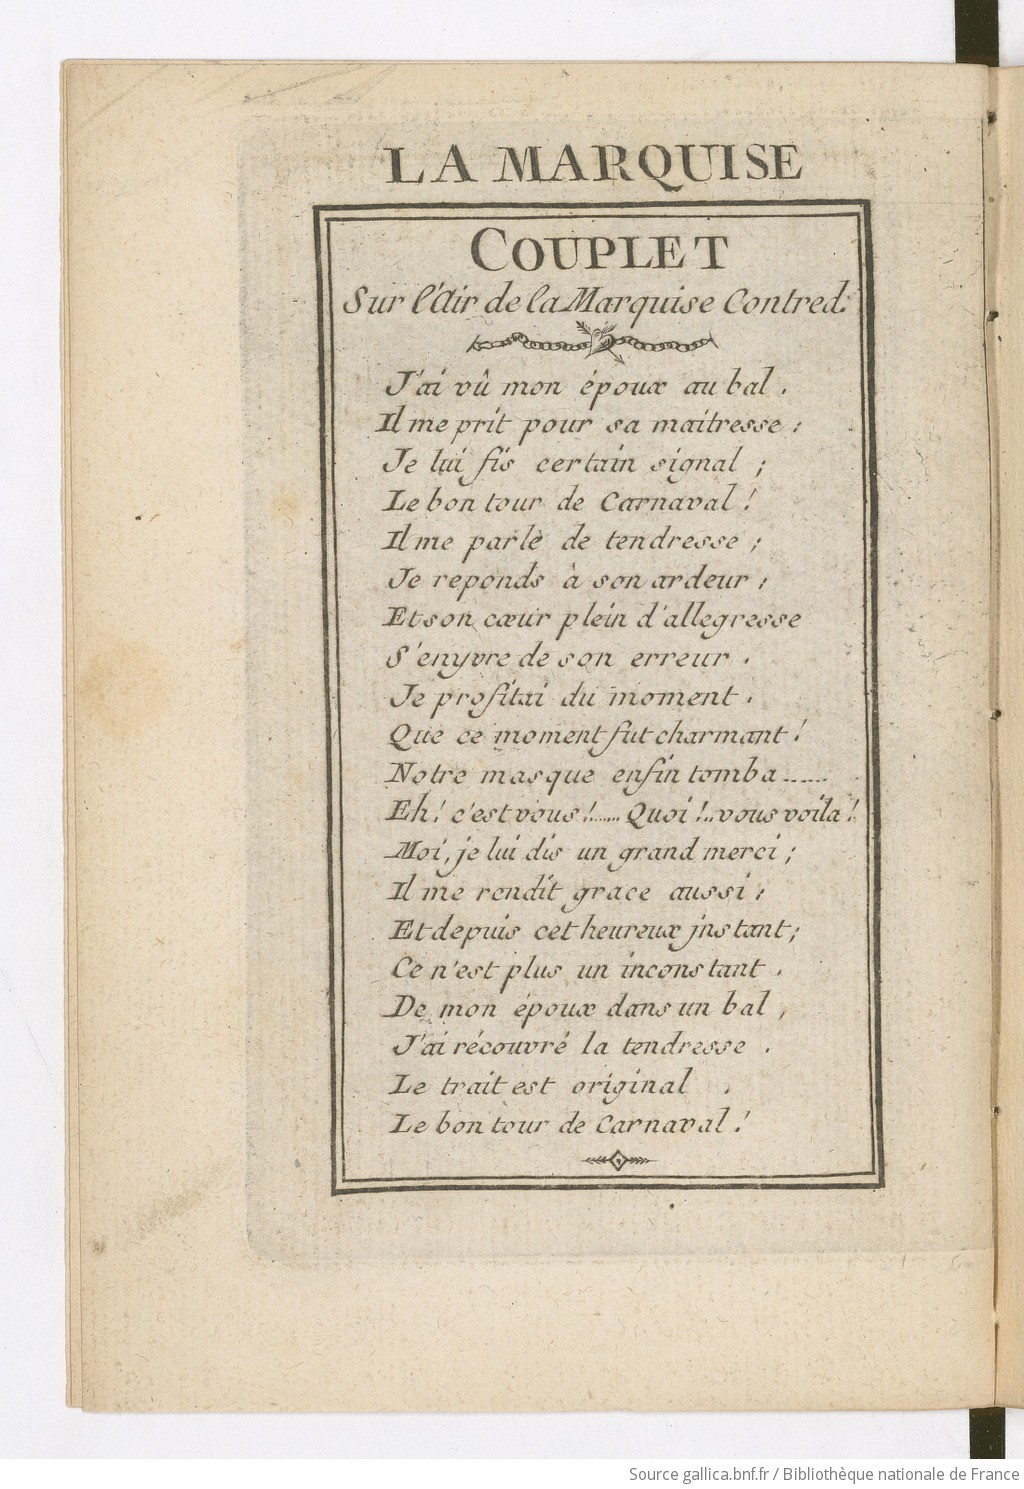 LA MARQUISE
COUPLET
Sur l'Air de la Marquise Contred.
J'ai vû mon époux au bal.
Il me prit pour sa maitresse;
Je lui fis certain signal;
Le bon tour de Carnaval!
Il me parlè de tendresse;
Je reponds à son ardeur;
Et son cœur plein d'allegresse
S'enyvre de son erreur.
Je profitai du moment.
Que ce moment fut charmant!
Notre masque enfin tomba......
Eh! c'est vous!...... Quoi!.. vous voila!
Moi, je lui dis un grand merci;
Il me rendit grace aussi;
Et depuis cet heureux jnstant;
Ce n'est plus un inconstant.
De mon époux dans un bal,
J'ai récouvré la tendresse.
Le trait est original.
Le bon tour de Carnaval!
Source gallica.bnf.fr / Bibliothèque nationale de France